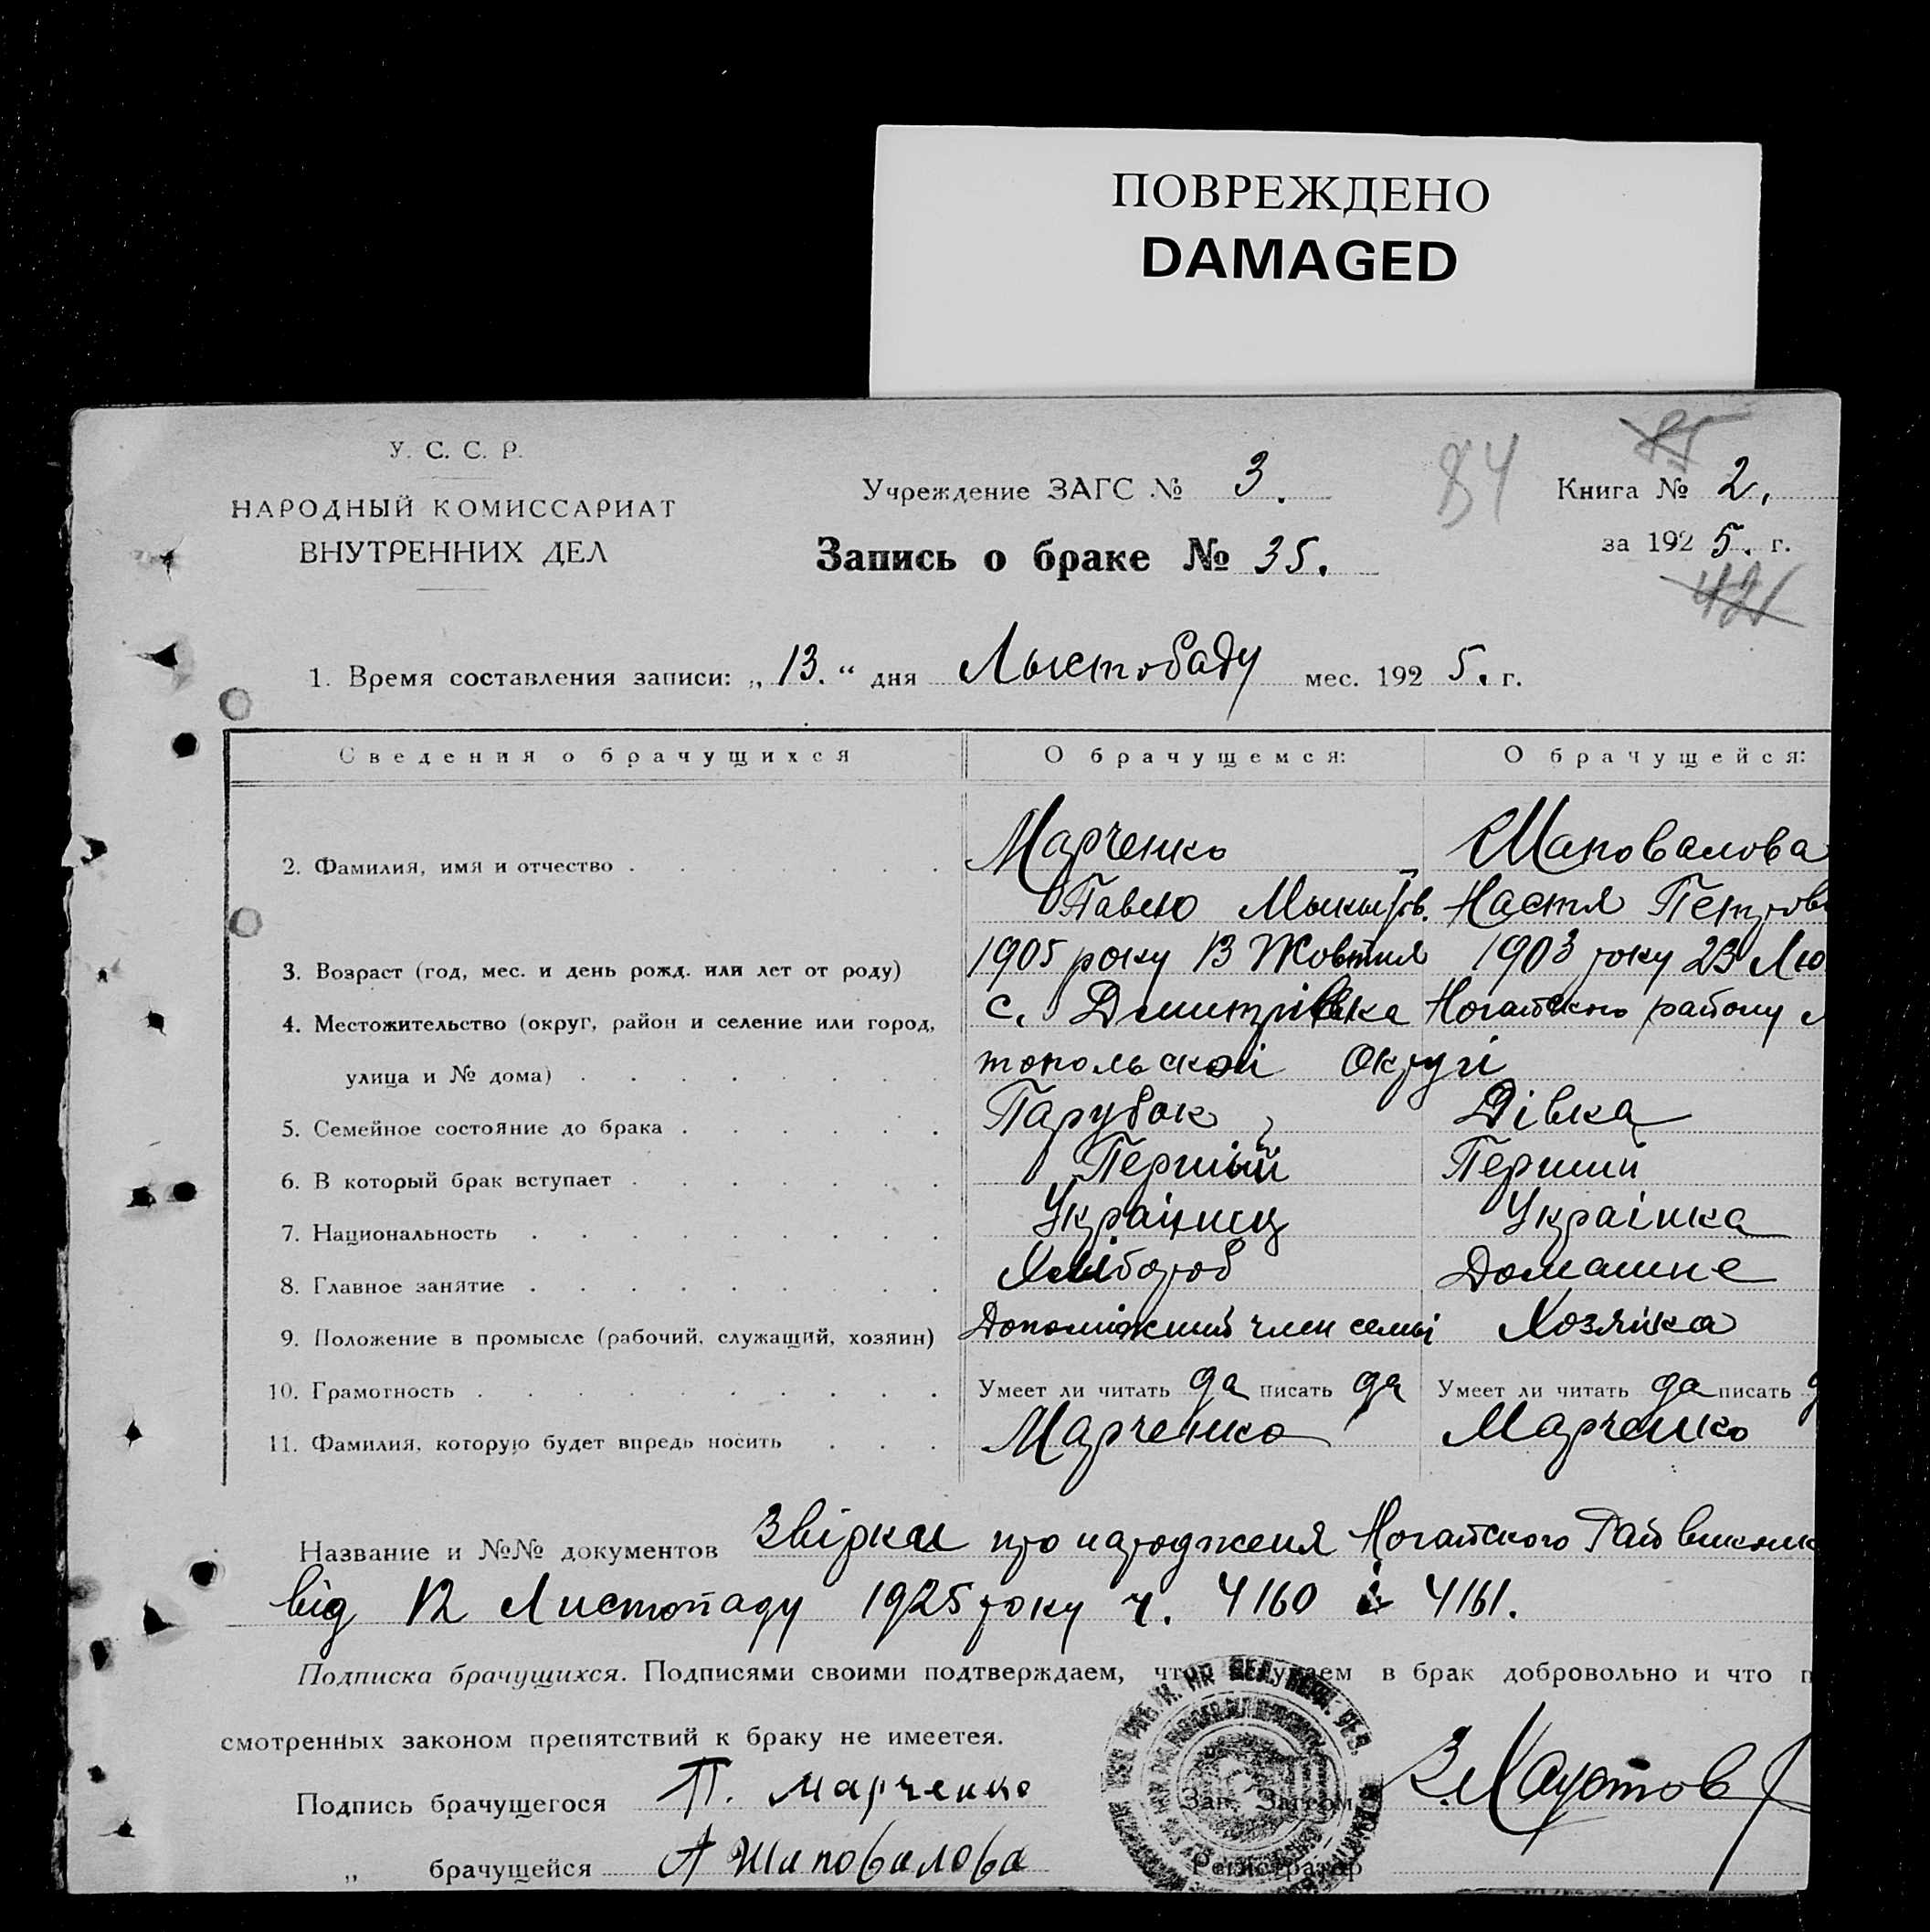 ПОВРЕЖДЕНО
DAMAGED
У. С. С. Р.
НАРОДНЫЙ КОМИССАРИАТ
ВНУТРЕННИХ ДЕЛ
Учреждение ЗАГС № 3.
84
85
Книга № 2.
за 1925. г.
Запись о браке № 35.
1. Время составления записи: „13.“ дня Лыстобаду мес. 1925. г.
Сведения о брачущихся О брачущемся: О брачущейся:
2. Фамилия, имя и отчество Марченко Шаповалова
Павло Мыкыт. Настя Петров
3. Возраст (год, мес. и день рожд. или лет от роду) 1905 року 13 Жовтня 1903 року 23 Лю
4. Местожительство (округ, район и селение или город, с. Дмитрівка Ногайського району
улица и № дома) топольскої Округі
5. Семейное состояние до брака Парубок Дівка
6. В который брак вступает Перший Перший
7. Национальность Українец Українка
8. Главное занятие Хлібороб Домашнє
9. Положение в промысле (рабочий, служащий, хозяин) Допоміжний член семьі Хозяйка
10. Грамотность Умеет ли читать да писать да Умеет ли читать да писать
11. Фамилия, которую будет впредь носить Марченко Марченко
Название и №№ документов Звірка про народженя Ногайского Рай
від 12 Листопаду 1925 року ч. 4160 і 4161.
Подписка брачущихся. Подписями своими подтверждаем, что в брак добровольно и что п
смотренных законом препятствий к браку не имеетея.
Подпись брачущегося П. Марченко Зав. Загсом
„ брачущейся А Шаповалова Регистратор